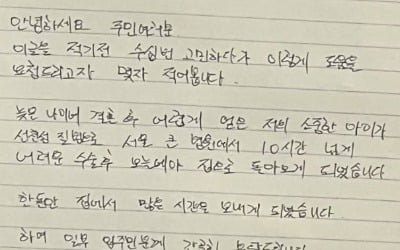 안녕하세요 주민여러분
이글을 적기전 수십번 고민하다가 이렇게 도움을
요청드리고자 몇자 적어봅니다.
늦은 나이에 결혼 후 어렵게 얻은 저의 소중한 아이가
선천성 질병으로 서울 큰 병원에서 10시간 넘게
어려운 수술후 오늘에야 집으로 돌아오게 되었습니다
한동안 집에서 많은 시간을 보내게 되었습니다
하여 일부 입주민분께 간곡히 부탁드립니다